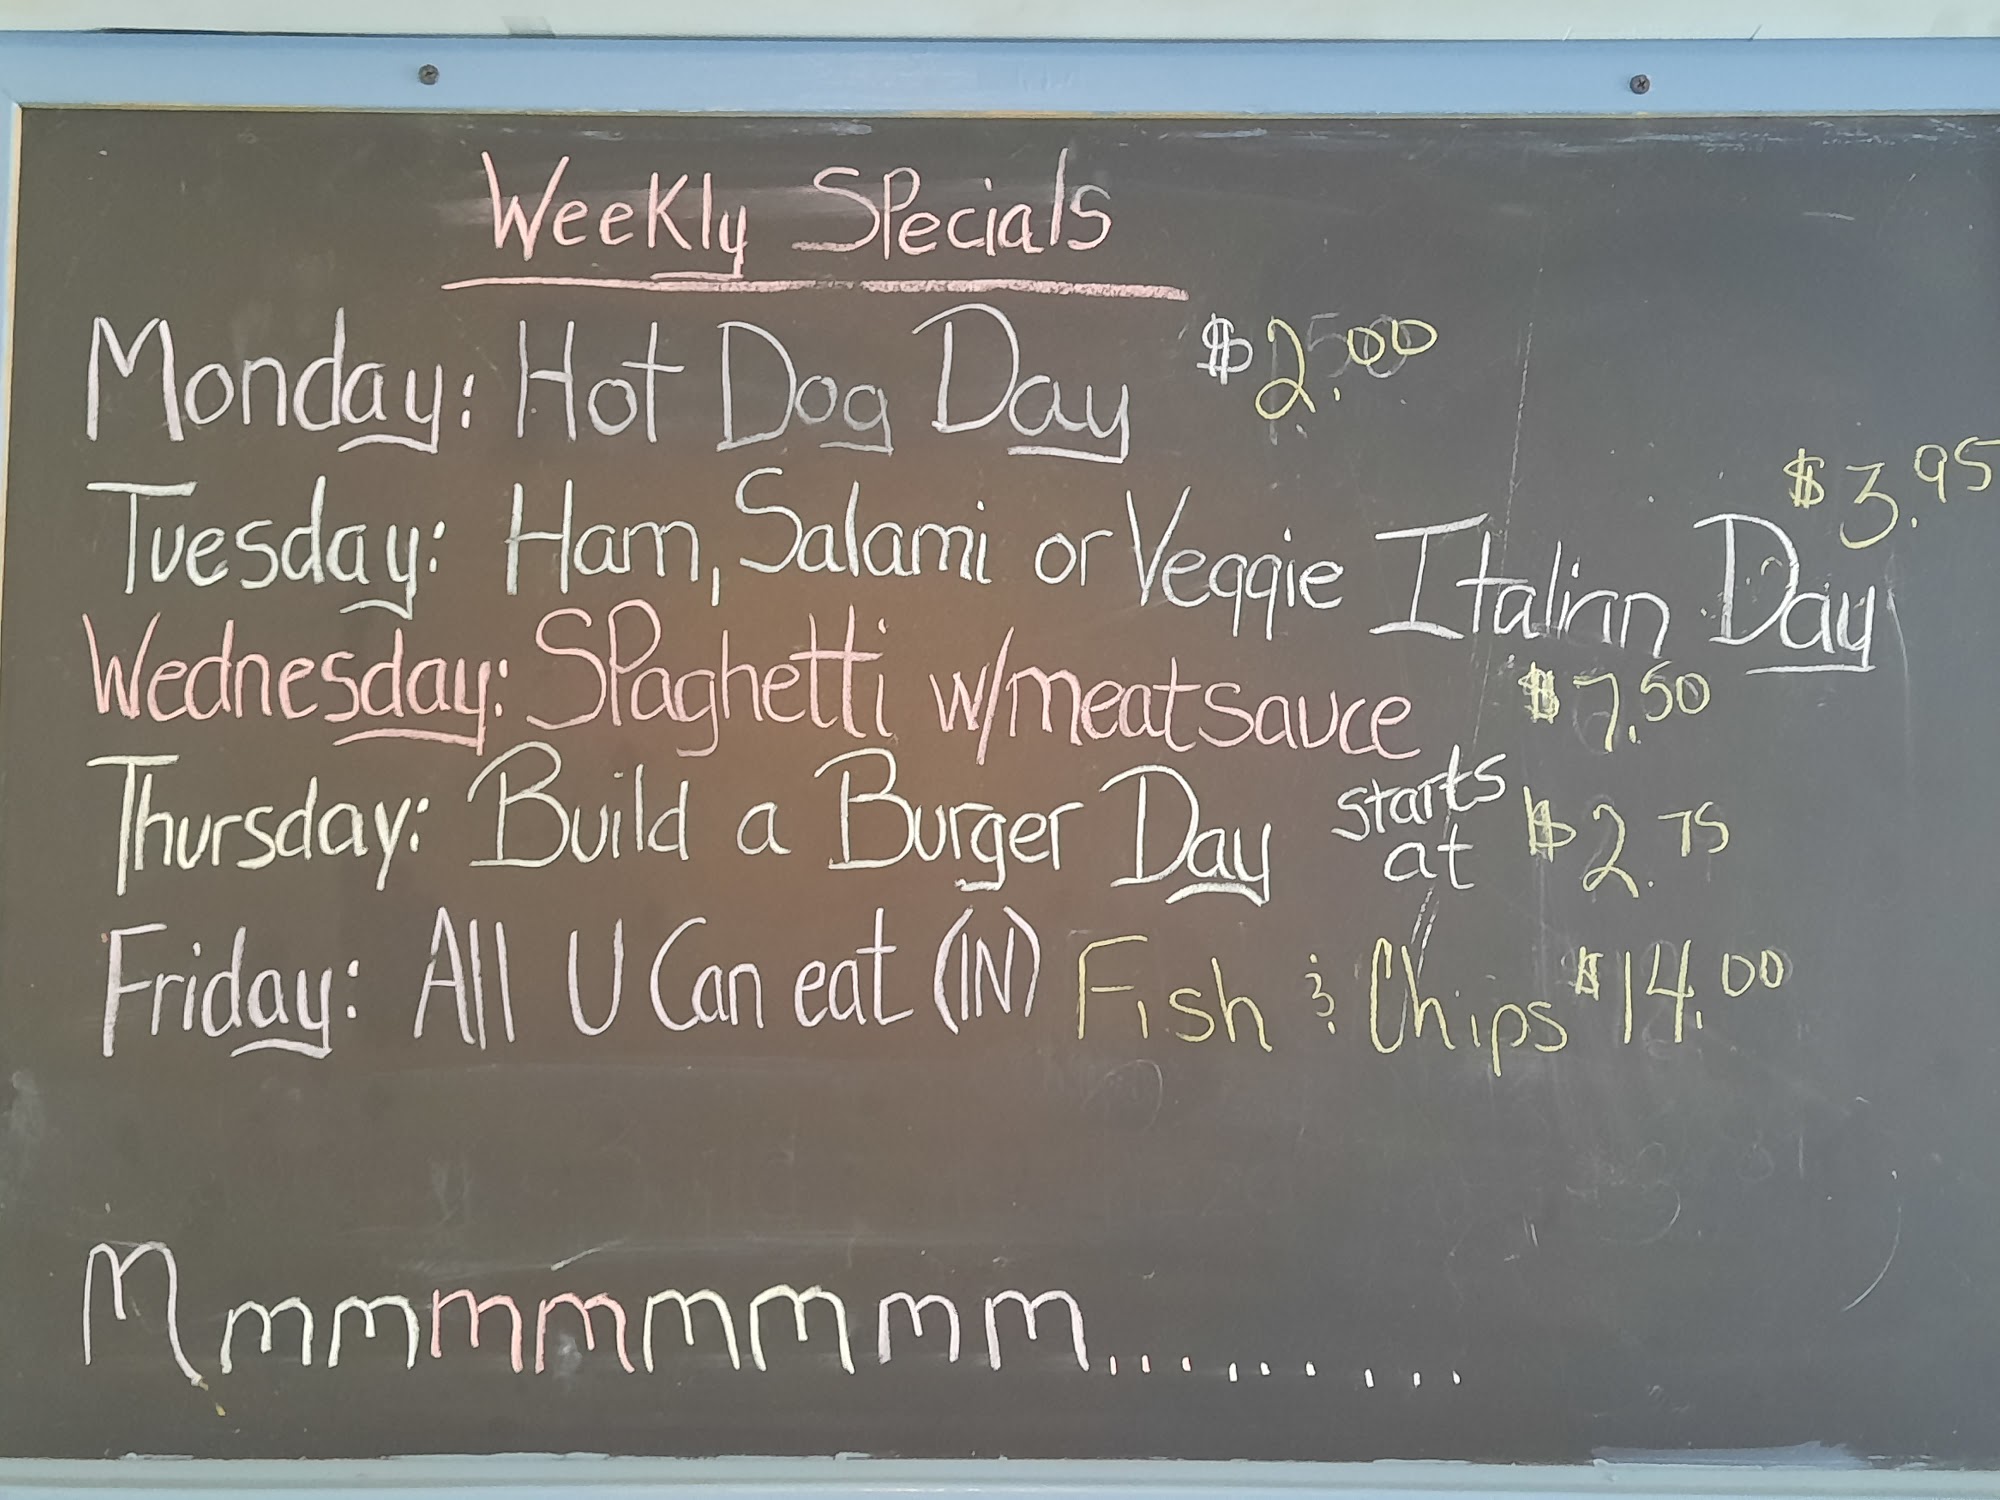 Weekly Specials
Monday: Hot Dog Day $2.00
Tuesday: Ham, Salami or Veggie Italian Day $3.95
Wednesday: Spaghetti w/meatsauce $7.50
Thursday: Build a Burger Day starts at $2.75
Friday: All U Can eat (IN) Fish & Chips $14.00
Mmmmmmmmm............